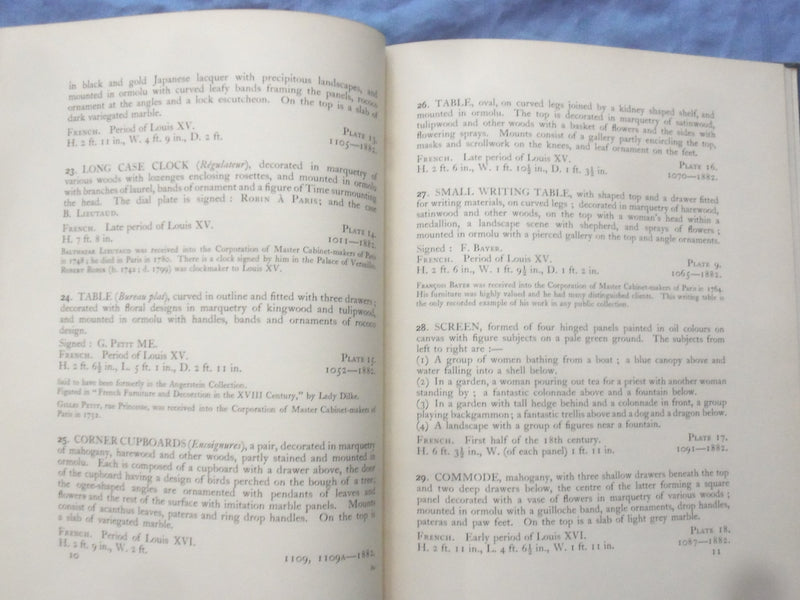 in black and gold Japanese lacquer with precipitous landscapes, and
mounted in ormolu with curved leafy bands framing the panels, rococo
ornament at the angles and a lock escutcheon. On the top is a slab of
dark variegated marble.
FRENCH. Period of Louis XV.
H. 2 ft. 11 in., W. 4 ft. 9 in., D. 2 ft.
PLATE 13.
1105—1882.
23. LONG CASE CLOCK (Régulateur), decorated in marquetry of
various woods with lozenges enclosing rosettes, and mounted in ormolu
with branches of laurel, bands of ornament and a figure of Time surmounting
the head. The dial plate is signed : ROBIN À PARIS; and the case
B. LIEUTAUD.
FRENCH. Late period of Louis XV.
H. 7 ft. 8 in.
PLATE 14.
1011—1882.
BALTHAZAR LIEUTAUD was received into the Corporation of Master Cabinet-makers of Paris
in 1748; he died in Paris in 1780. There is a clock signed by him in the Palace of Versailles.
ROBERT ROBIN (b. 1742; d. 1799) was clockmaker to Louis XV.
24. TABLE (Bureau plat), curved in outline and fitted with three drawers;
decorated with floral designs in marquetry of kingwood and tulipwood,
and mounted in ormolu with handles, bands and ornaments of rococo
design.
Signed : G. PETIT ME.
FRENCH. Period of Louis XV.
H. 2 ft. 6½ in., L. 5 ft. 1 in., D. 2 ft. 11 in.
PLATE 15.
1052—1882.
Said to have been formerly in the Angerstein Collection.
Figured in "French Furniture and Decoration in the XVIII Century," by Lady Dilke.
GILLES PETIT, rue Princesse, was received into the Corporation of Master Cabinet-makers of
Paris in 1752.
25. CORNER CUPBOARDS (Encoignures), a pair, decorated in marquetry
of mahogany, harewood and other woods, partly stained and mounted in
ormolu. Each is composed of a cupboard with a drawer above, the door
of the cupboard having a design of birds perched on the bough of a tree;
the ogee-shaped angles are ornamented with pendants of leaves and
flowers and the rest of the surface with imitation marble panels. Mounts
consist of acanthus leaves, pateras and ring drop handles. On the top is
a slab of variegated marble.
FRENCH. Period of Louis XVI.
H. 2 ft. 9 in., W. 2 ft.
1109, 1109A—1882.
10
26. TABLE, oval, on curved legs joined by a kidney shaped shelf, and
mounted in ormolu. The top is decorated in marquetry of satinwood,
tulipwood and other woods with a basket of flowers and the sides with
flowering sprays. Mounts consist of a gallery partly encircling the top,
masks and scrollwork on the knees, and leaf ornament on the feet.
FRENCH. Late period of Louis XV.
H. 2 ft. 6 in., W. 1 ft. 10½ in., D. 1 ft. 3½ in.
PLATE 16.
1070—1882.
27. SMALL WRITING TABLE, with shaped top and a drawer fitted
for writing materials, on curved legs; decorated in marquetry of harewood,
satinwood and other woods, on the top with a woman's head within a
medallion, a landscape scene with shepherd, and sprays of flowers;
mounted in ormolu with a pierced gallery on the top and angle ornaments.
Signed : F. BAYER.
FRENCH. Period of Louis XV.
H. 2 ft. 6 in., W. 1 ft. 9½ in., D. 1 ft. 2 in.
PLATE 9.
1065—1882.
FRANÇOIS BAYER was received into the Corporation of Master Cabinet-makers of Paris in 1764.
His furniture was highly valued and he had many distinguished clients. This writing table is
the only recorded example of his work in any public collection.
28. SCREEN, formed of four hinged panels painted in oil colours on
canvas with figure subjects on a pale green ground. The subjects from
left to right are :—
(1) A group of women bathing from a boat; a blue canopy above and
water falling into a shell below.
(2) In a garden, a woman pouring out tea for a priest with another woman
standing by; a fantastic colonnade above and a fountain below.
(3) In a garden with tall hedge behind and a colonnade in front, a group
playing backgammon; a fantastic trellis above and a dog and a dragon below.
(4) A landscape with a group of figures near a fountain.
FRENCH. First half of the 18th century.
H. 6 ft. 3½ in., W. (of each panel) 1 ft. 11 in.
PLATE 17.
1091—1882.
29. COMMODE, mahogany, with three shallow drawers beneath the top
and two deep drawers below, the centre of the latter forming a square
panel decorated with a vase of flowers in marquetry of various woods;
mounted in ormolu with a guilloche band, angle ornaments, drop handles,
pateras and paw feet. On the top is a slab of light grey marble.
FRENCH. Early period of Louis XVI.
H. 2 ft. 11 in., L. 4 ft. 6½ in., W. 1 ft. 11 in.
PLATE 18.
1087—1882.
11